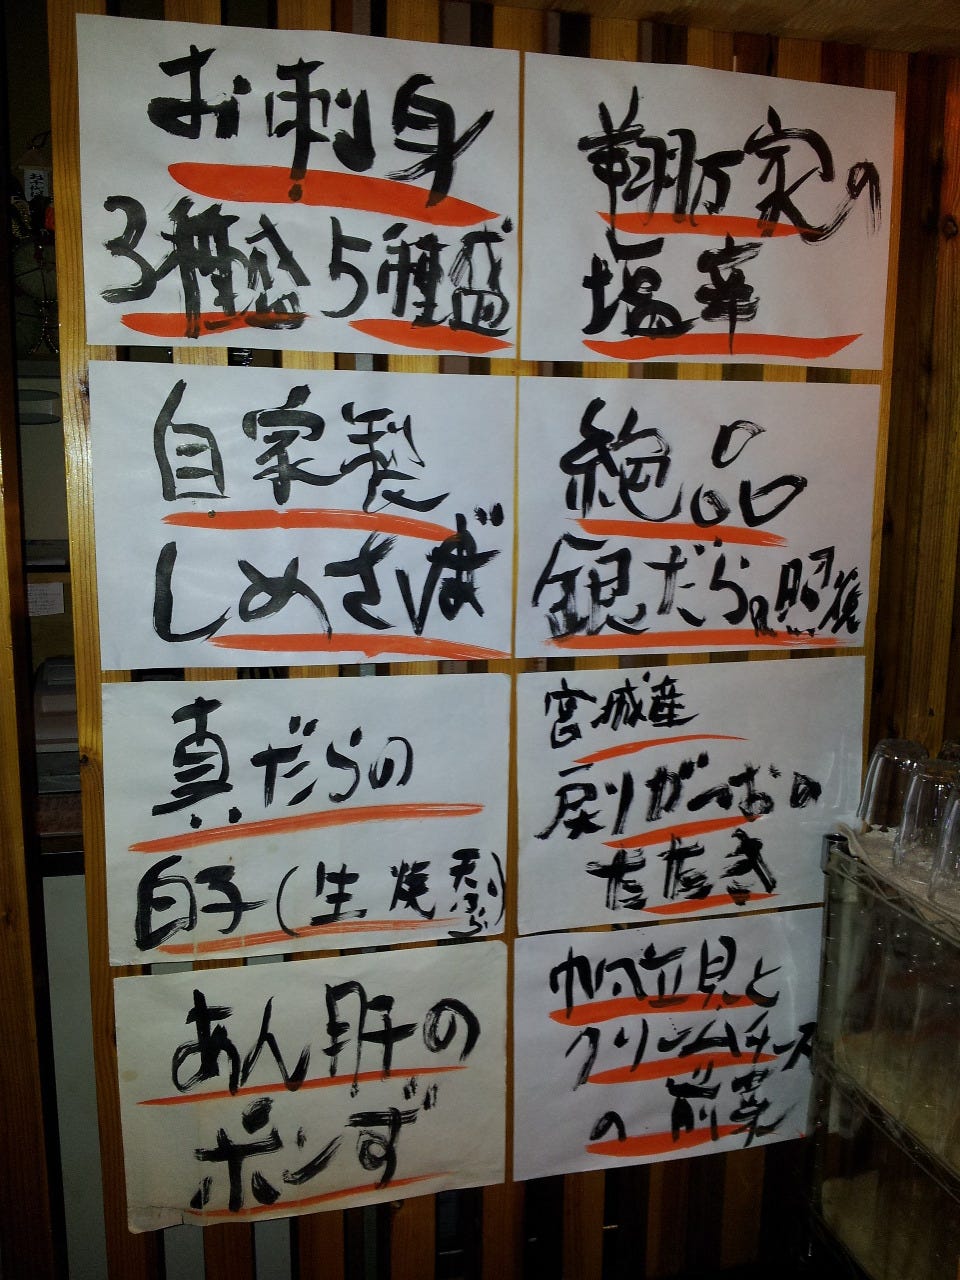 お刺身
3種盛 5種盛
家の
塩辛
自家製
しめさば
絶品
銀だらの照焼
真だらの
白子(生 焼 天ぷら)
宮城産
戻りがつおの
たたき
あん肝の
ポンず
帆立貝と
クリームチーズ
の前菜